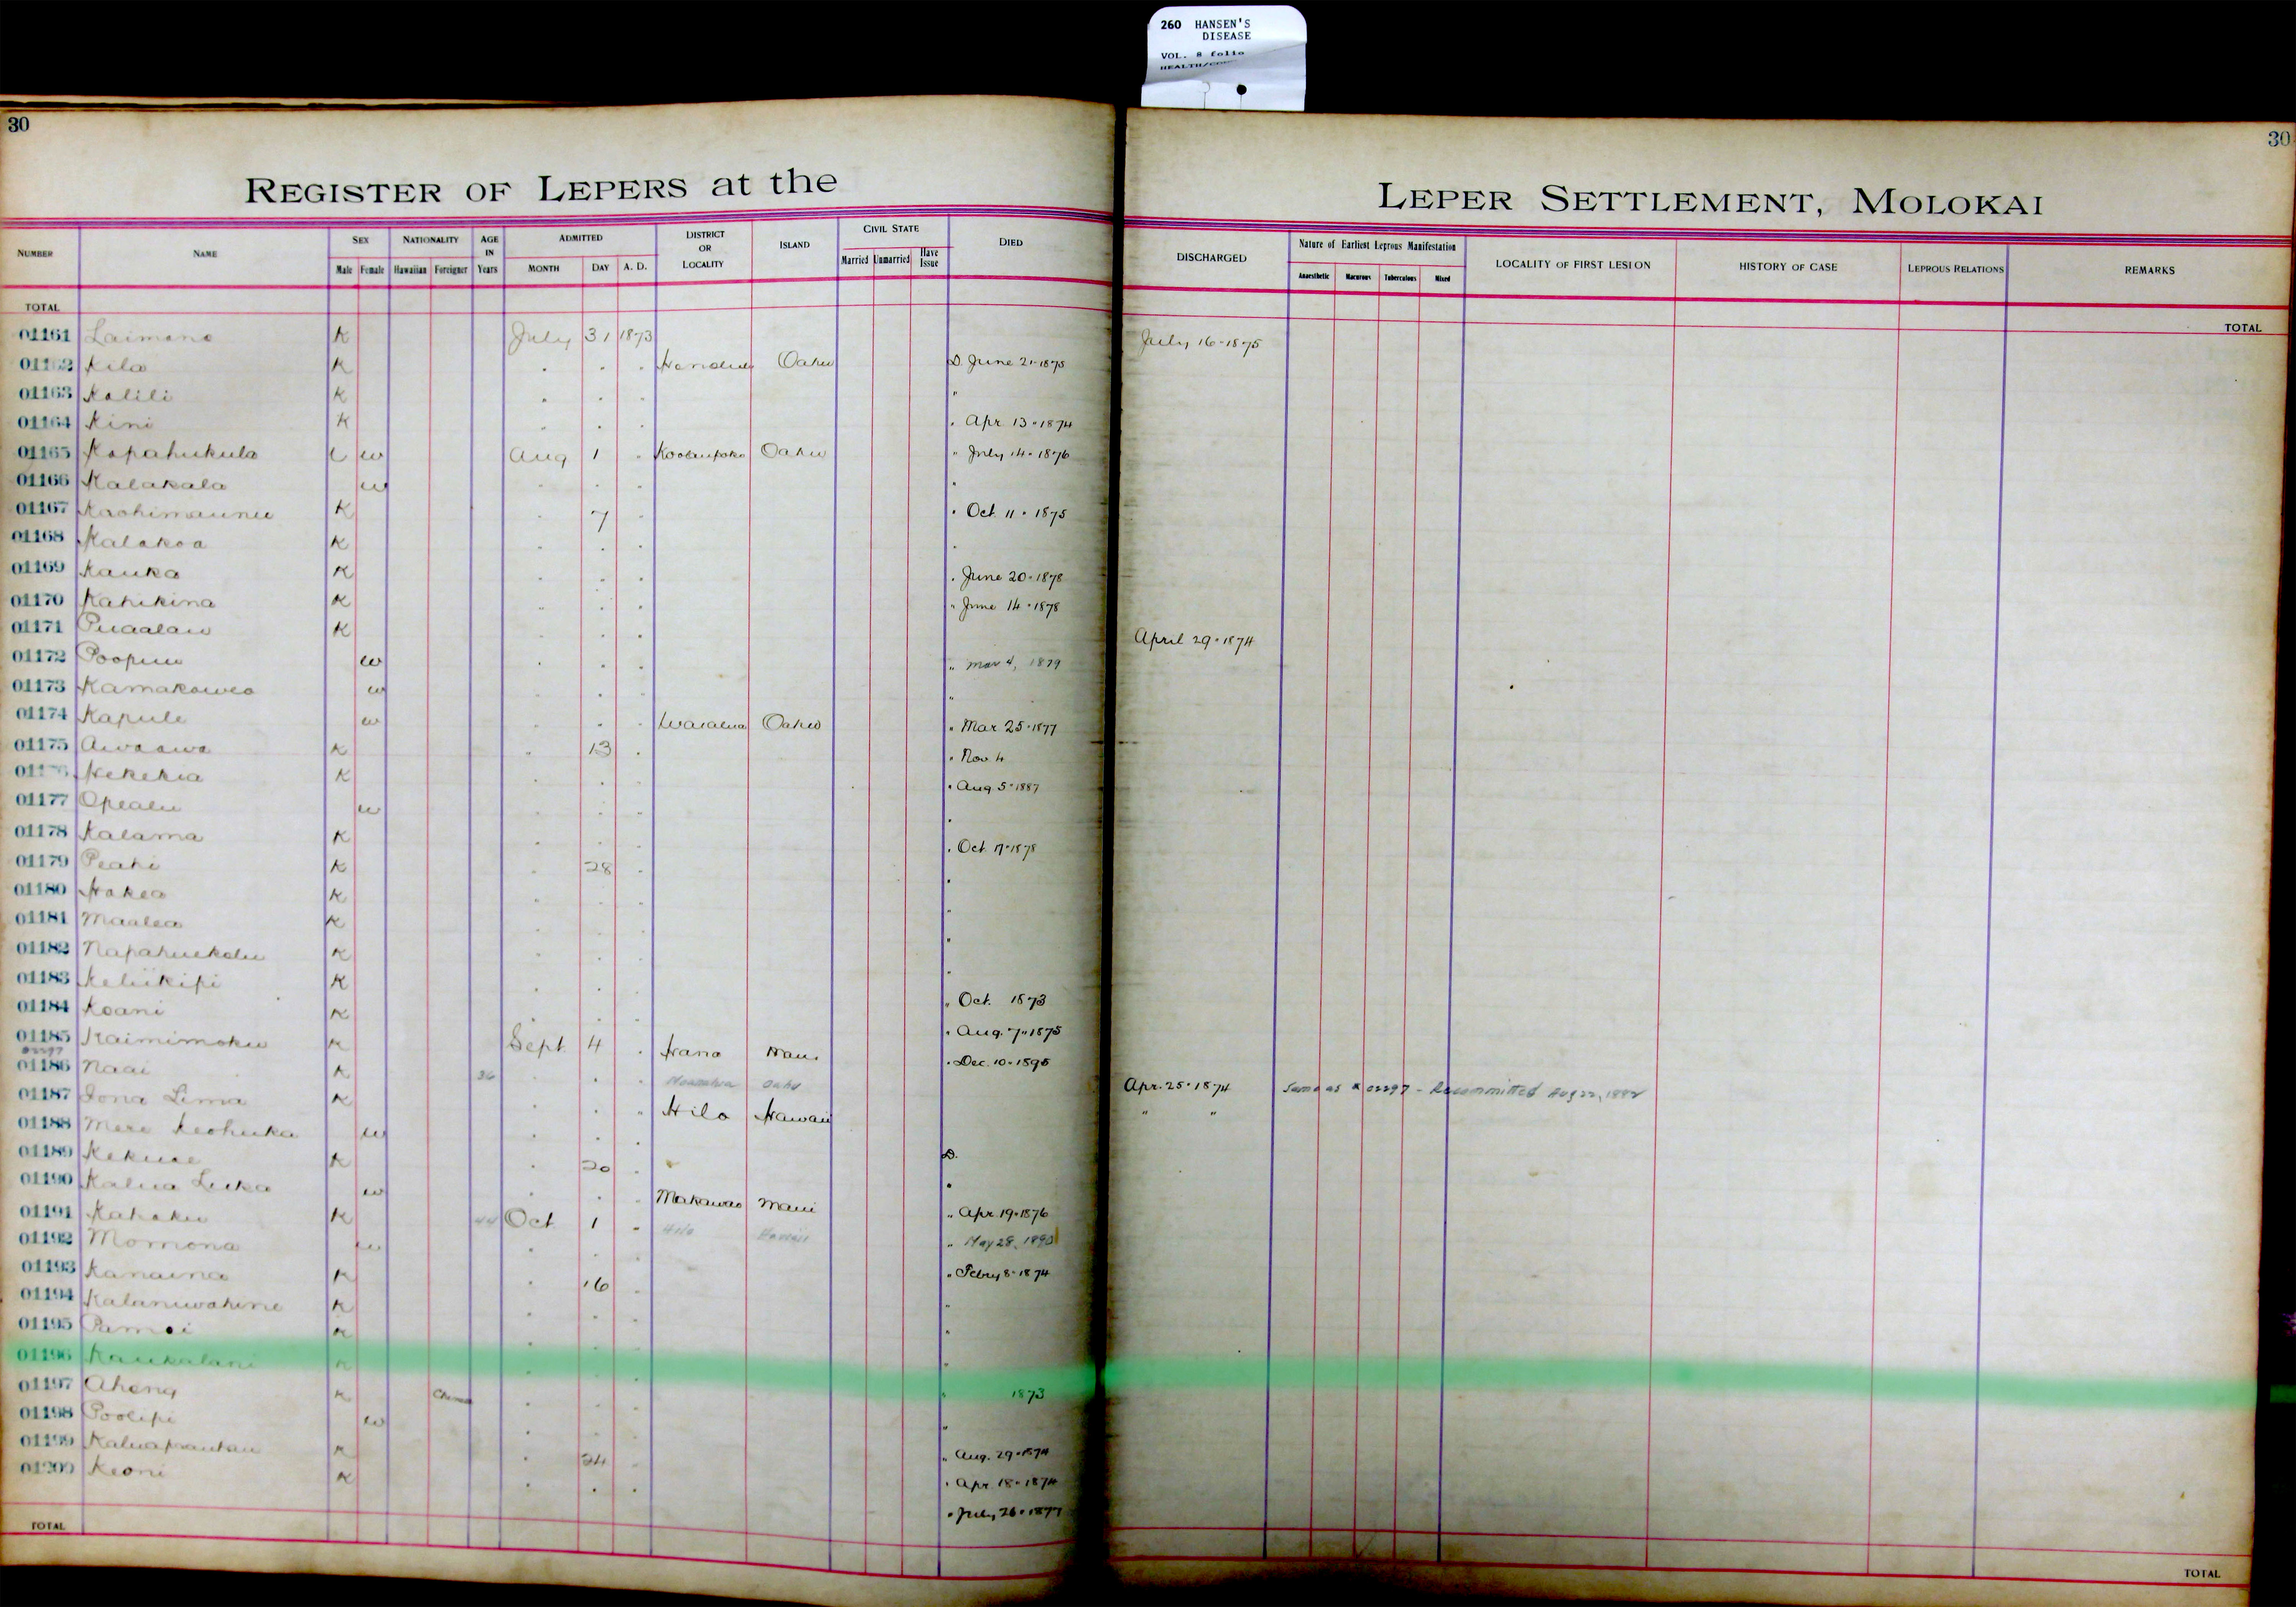 260 HANSEN'S
DISEASE
VOL. 8 folio
HEALTH/
30
30
REGISTER OF LEPERS at the
LEPER SETTLEMENT, MOLOKAI
NUMBER NAME SEX Male Female NATIONALITY Hawaiian Foreigner AGE IN Years ADMITTED MONTH DAY A. D. DISTRICT OR LOCALITY ISLAND CIVIL STATE Married Unmarried Have Issue DIED
DISCHARGED Nature of Earliest Leprous Manifestation Anaesthetic Macurous Tuberculous Mixed LOCALITY OF FIRST LESION HISTORY OF CASE LEPROUS RELATIONS REMARKS
TOTAL
TOTAL
01161 Laimana K July 31 1873 July 16-1875
01162 Kila K . . . Honolulu Oahu D. June 21-1875
01163 Kalili K . . . "
01164 Kini K . . . . Apr. 13-1874
01165 Kapahukula w Aug 1 . Koolaupoko Oahu " July 14-1876
01166 Kalakala w . . . .
01167 Kaohimaunu K . 7 . . Oct. 11-1875
01168 Kalakoa K . . . .
01169 Kauka K . . . . June 20-1878
01170 Kahikina K . . . " June 14-1878
01171 Puaalau K . . . April 29-1874
01172 Poopuu w . . . " Mar 4, 1879
01173 Kamakawea w . . . "
01174 Kapule w . . . Waialua Oahu " Mar. 25-1877
01175 Awaawa K . 13 . . Nov. 4
Kekekia K . . . . Aug 5-1887
01177 Opealu w . . . .
01178 Kalama K . . . . Oct. 17-1878
01179 Peahi K . 28 . .
01180 Hakea K . . . "
01181 Maalea K . . . .
01182 Napahuekolu K . . . "
01183 Keliikipi K . . . " Oct. 1873
01184 Koani K . . . . Aug. 7-1875
01185 Kaimimoku K Sept. 4 . Hana Maui . Dec. 10-1895
01186 Naai K 36 . . . Oahu Apr. 25-1874 Same as # 02297 - Recommitted Aug 22, 1882
01187 Iona Lima K . . " Hilo Hawaii " "
01188 Mere Keohuka w . . . D.
01189 Kekuae K . 20 . .
01190 Kalua Luka w . . . Makawao Maui " Apr. 19-1876
01191 Kahaku K 44 Oct 1 " Hilo Hawaii " May 28, 1890
01192 Momona w . . . " Febry 8-1874
01193 Kanaina K . 16 . "
01194 Kalaniwahine K . . . .
01195 Pamai K . . . .
01196 Kaukalani K . . . . 1873
01197 Aheng K China . . . "
01198 Poolipi w . . . " Aug. 29-1874
01199 K . 24 . . Apr. 18-1874
01200 Keoni K . . . . July 26-1877
TOTAL
TOTAL